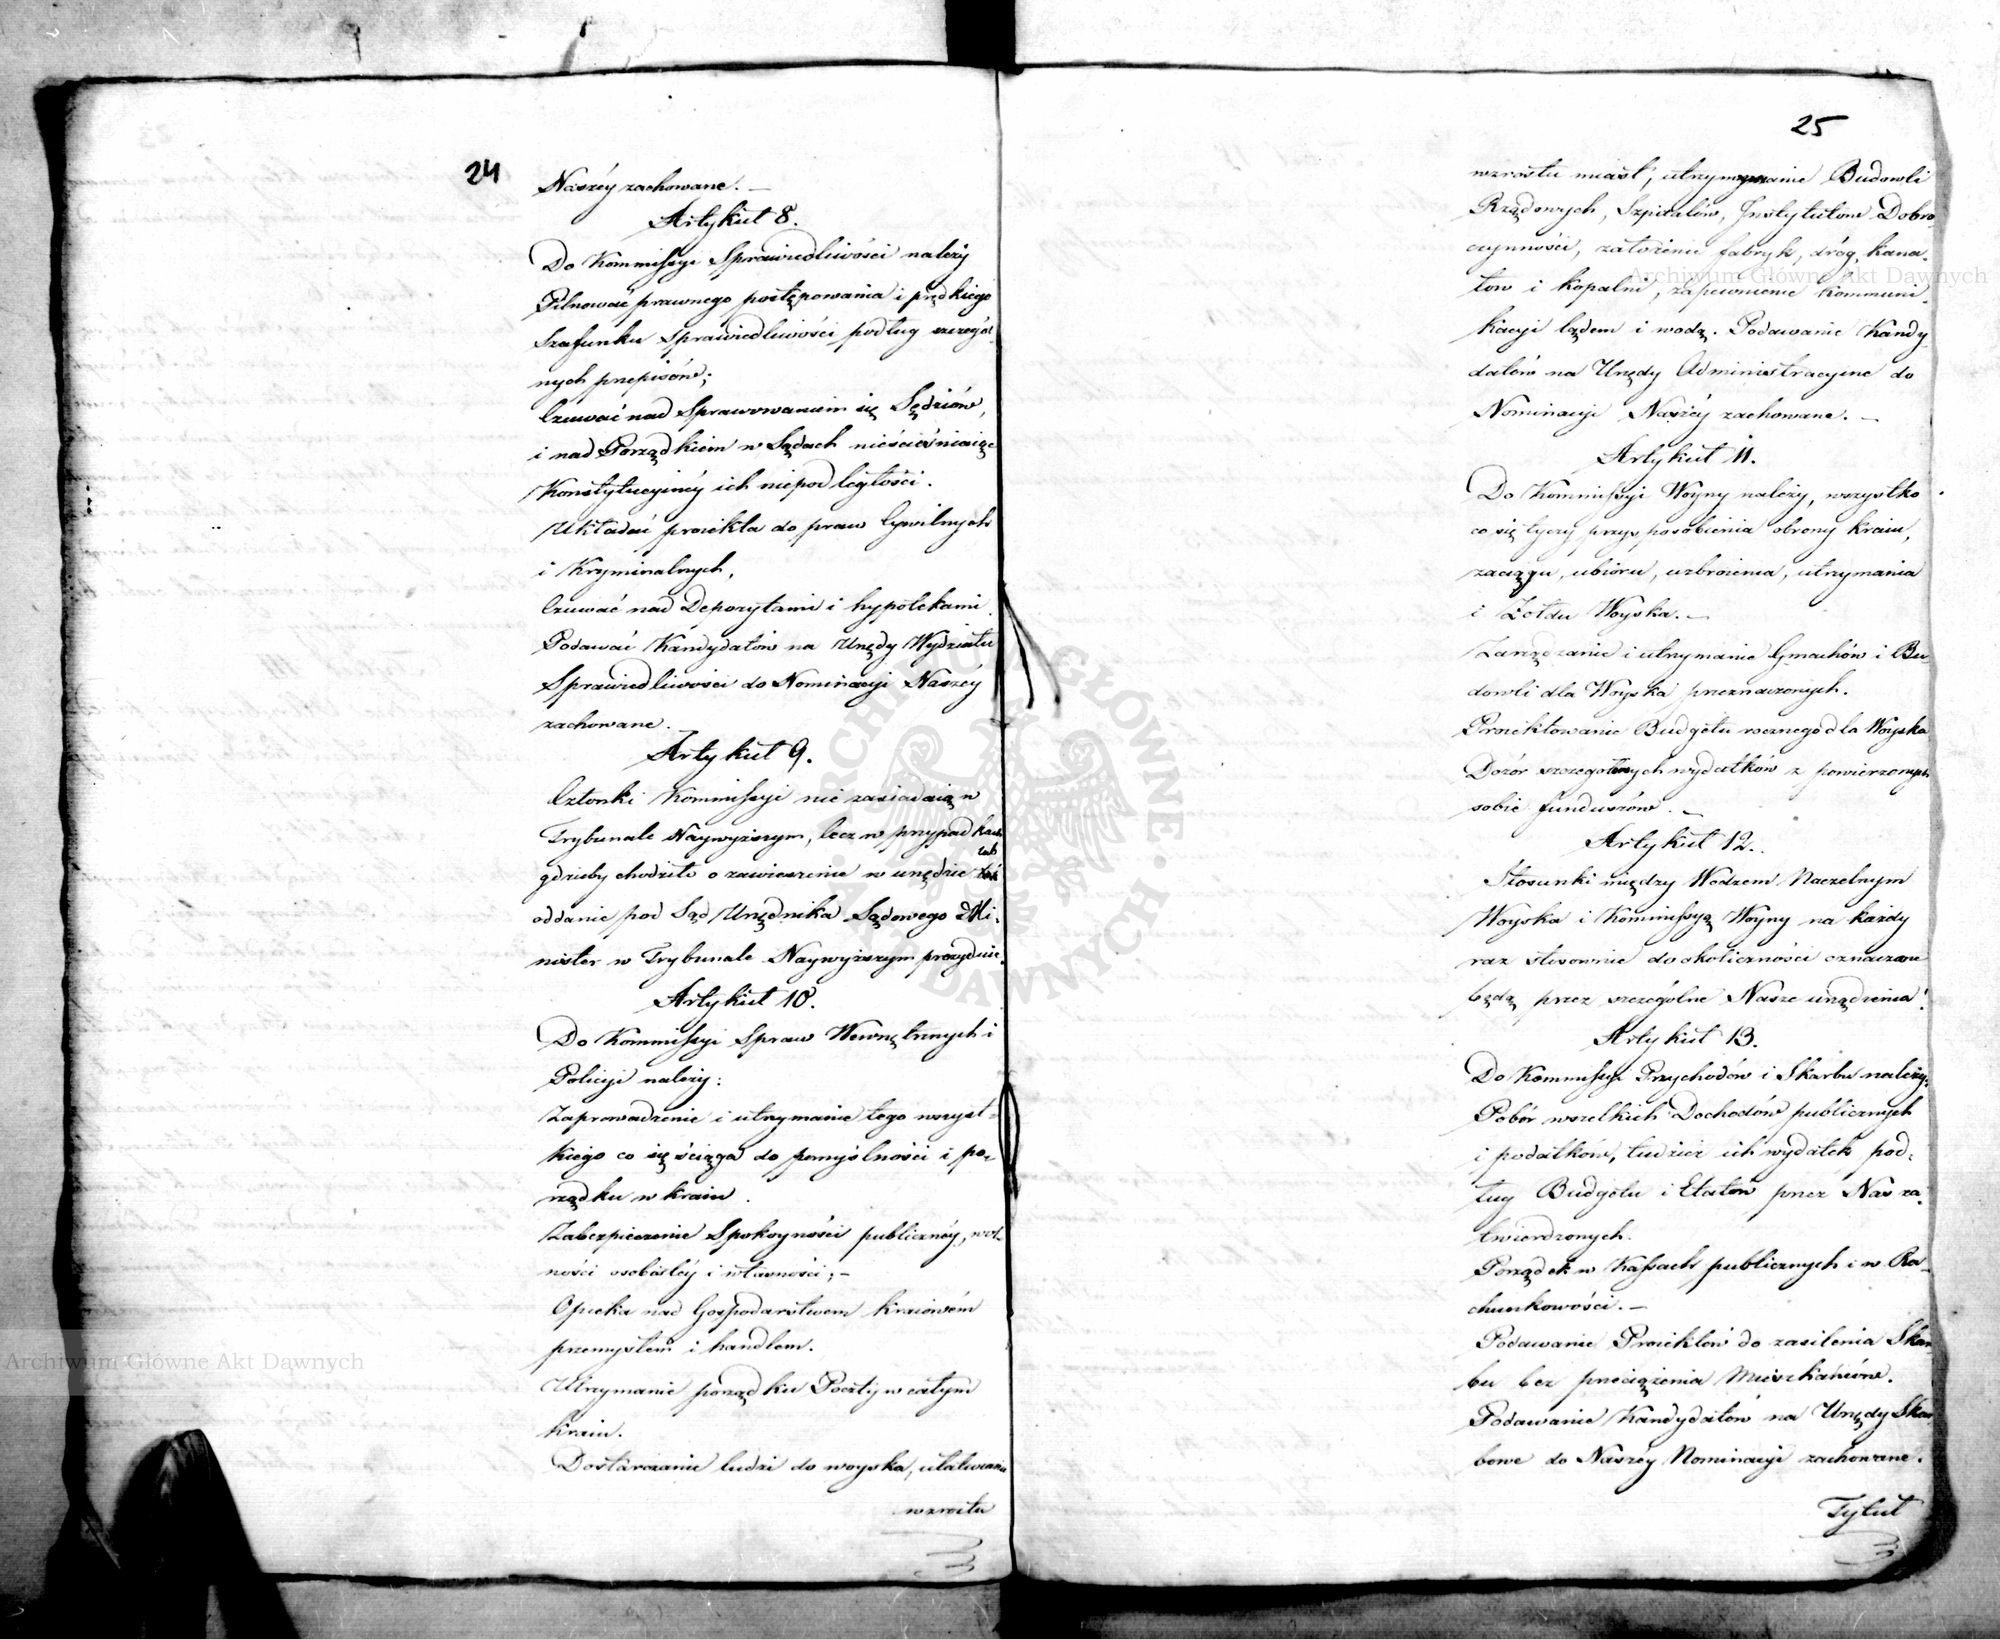 24
Naszéy zachowane. —
Artykuł 8.
Do Kommissyi Sprawiedliwości należy
Pilnować prawnego postępowania i prędkiego
Szafunku Sprawiedliwości podług szczegól-
nych przepisów;
Czuwać nad Sprawowaniem się Sędziów,
i nad Porządkiem w Sądach nieścieśniaiąc
Konstytucyinéy ich niepodległości.
Układać proiekta do praw Cywilnych
i Kryminalnych,
Czuwać nad Depozytami i hypotekami
Podawać Kandydatów na Urzędy Wydziału
Sprawiedliwości do Nominacyi Naszéy
zachowane.
Artykuł 9.
Członki Kommissyi nie zasiadaią w
Trybunale Naywyższym, lecz w przypadkach
lub
gdzieby chodziło o zawieszenie w urzędzie
oddanie pod Sąd Urzędnika Sądowego Mi-
nister w Trybunale Naywyższym prezyduie.
Artykuł 10.
Do Kommissyi Spraw Wewnętrznych i
Policyi należy:
Zaprowadzenie i utrzymanie tego wszyst-
kiego co się ściąga do pomyślności i po-
rządku w kraiu.
Zabezpieczenie Spokoyności publicznéy, wol-
ności osobistéy i własności; —
Opieka nad Gospodarstwem kraiowém
przemysłem i handlem.
Utrzymanie porządku Poczty w całym
kraiu.
Dostarczanie ludzi do woyska, ułatwianie
wzrostu
25
wzrostu miast, utrzymywanie Budowli
Rządowych, Szpitalów, Instytutów Dobro-
czynności, założenie fabryk, dróg, kana-
łów i kopalni, zapewnienie kommuni-
kacyi lądem i wodą. Podawanie Kandy-
datów na Urzędy Administracyine do
Nominacyi Naszéy zachowane. —
Artykuł 11.
Do Kommissyi Woyny należy, wszystko
co się tyczy przysposobienia obrony kraiu,
zaciągu, ubioru, uzbroienia, utrzymania
i Żołdu Woyska. —
Zarządzanie i utrzymanie Gmachów i Bu-
dowli dla Woyska przeznaczonych.
Proiektowanie Budgetu rocznego dla Woyska
Dozór szczegółnych wydatków z powierzonych
sobie funduszów. —
Artykuł 12.
Stosunki między Wodzem Naczelnym
Woyska i Kommissyą Woyny na każdy
raz stosownie do okoliczności oznaczone
będą przez szczególne Nasze urządzenia.
Artykuł 13.
Do Kommissyi Przychodów i Skarbu należy:
Pobór wszelkich Dochodów publicznych
i podatków, tudzież ich wydatek pod-
ług Budgetu i Etatów przez Nas za-
twierdzonych.
Porządek w Kassach publicznych i w Ra-
chunkowości. —
Podawanie Proiektów do zasilenia Skar-
bu bez przeciążenia Mieszkańców.
Podawanie Kandydatów na Urzędy Skar-
bowe do Naszéy Nominacyi zachowane.
Tytuł
Archiwum Główne Akt Dawnych
Archiwum Główne Akt Dawnych
ARCHIWUM GŁÓWNE AKT DAWNYCH